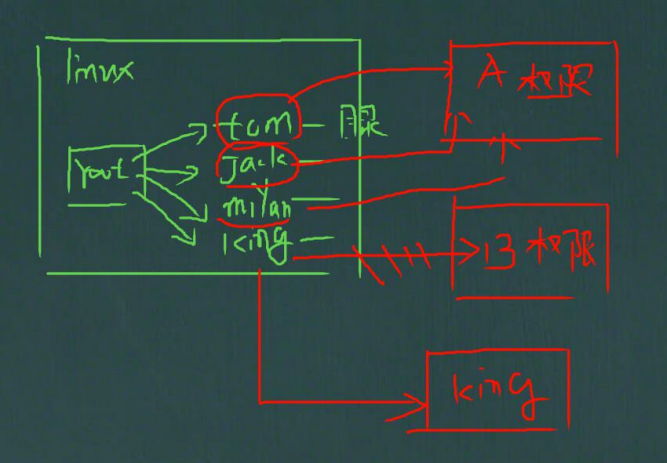 linux
root
tom
限
jack
milan
king
A 权限
B 权限
king